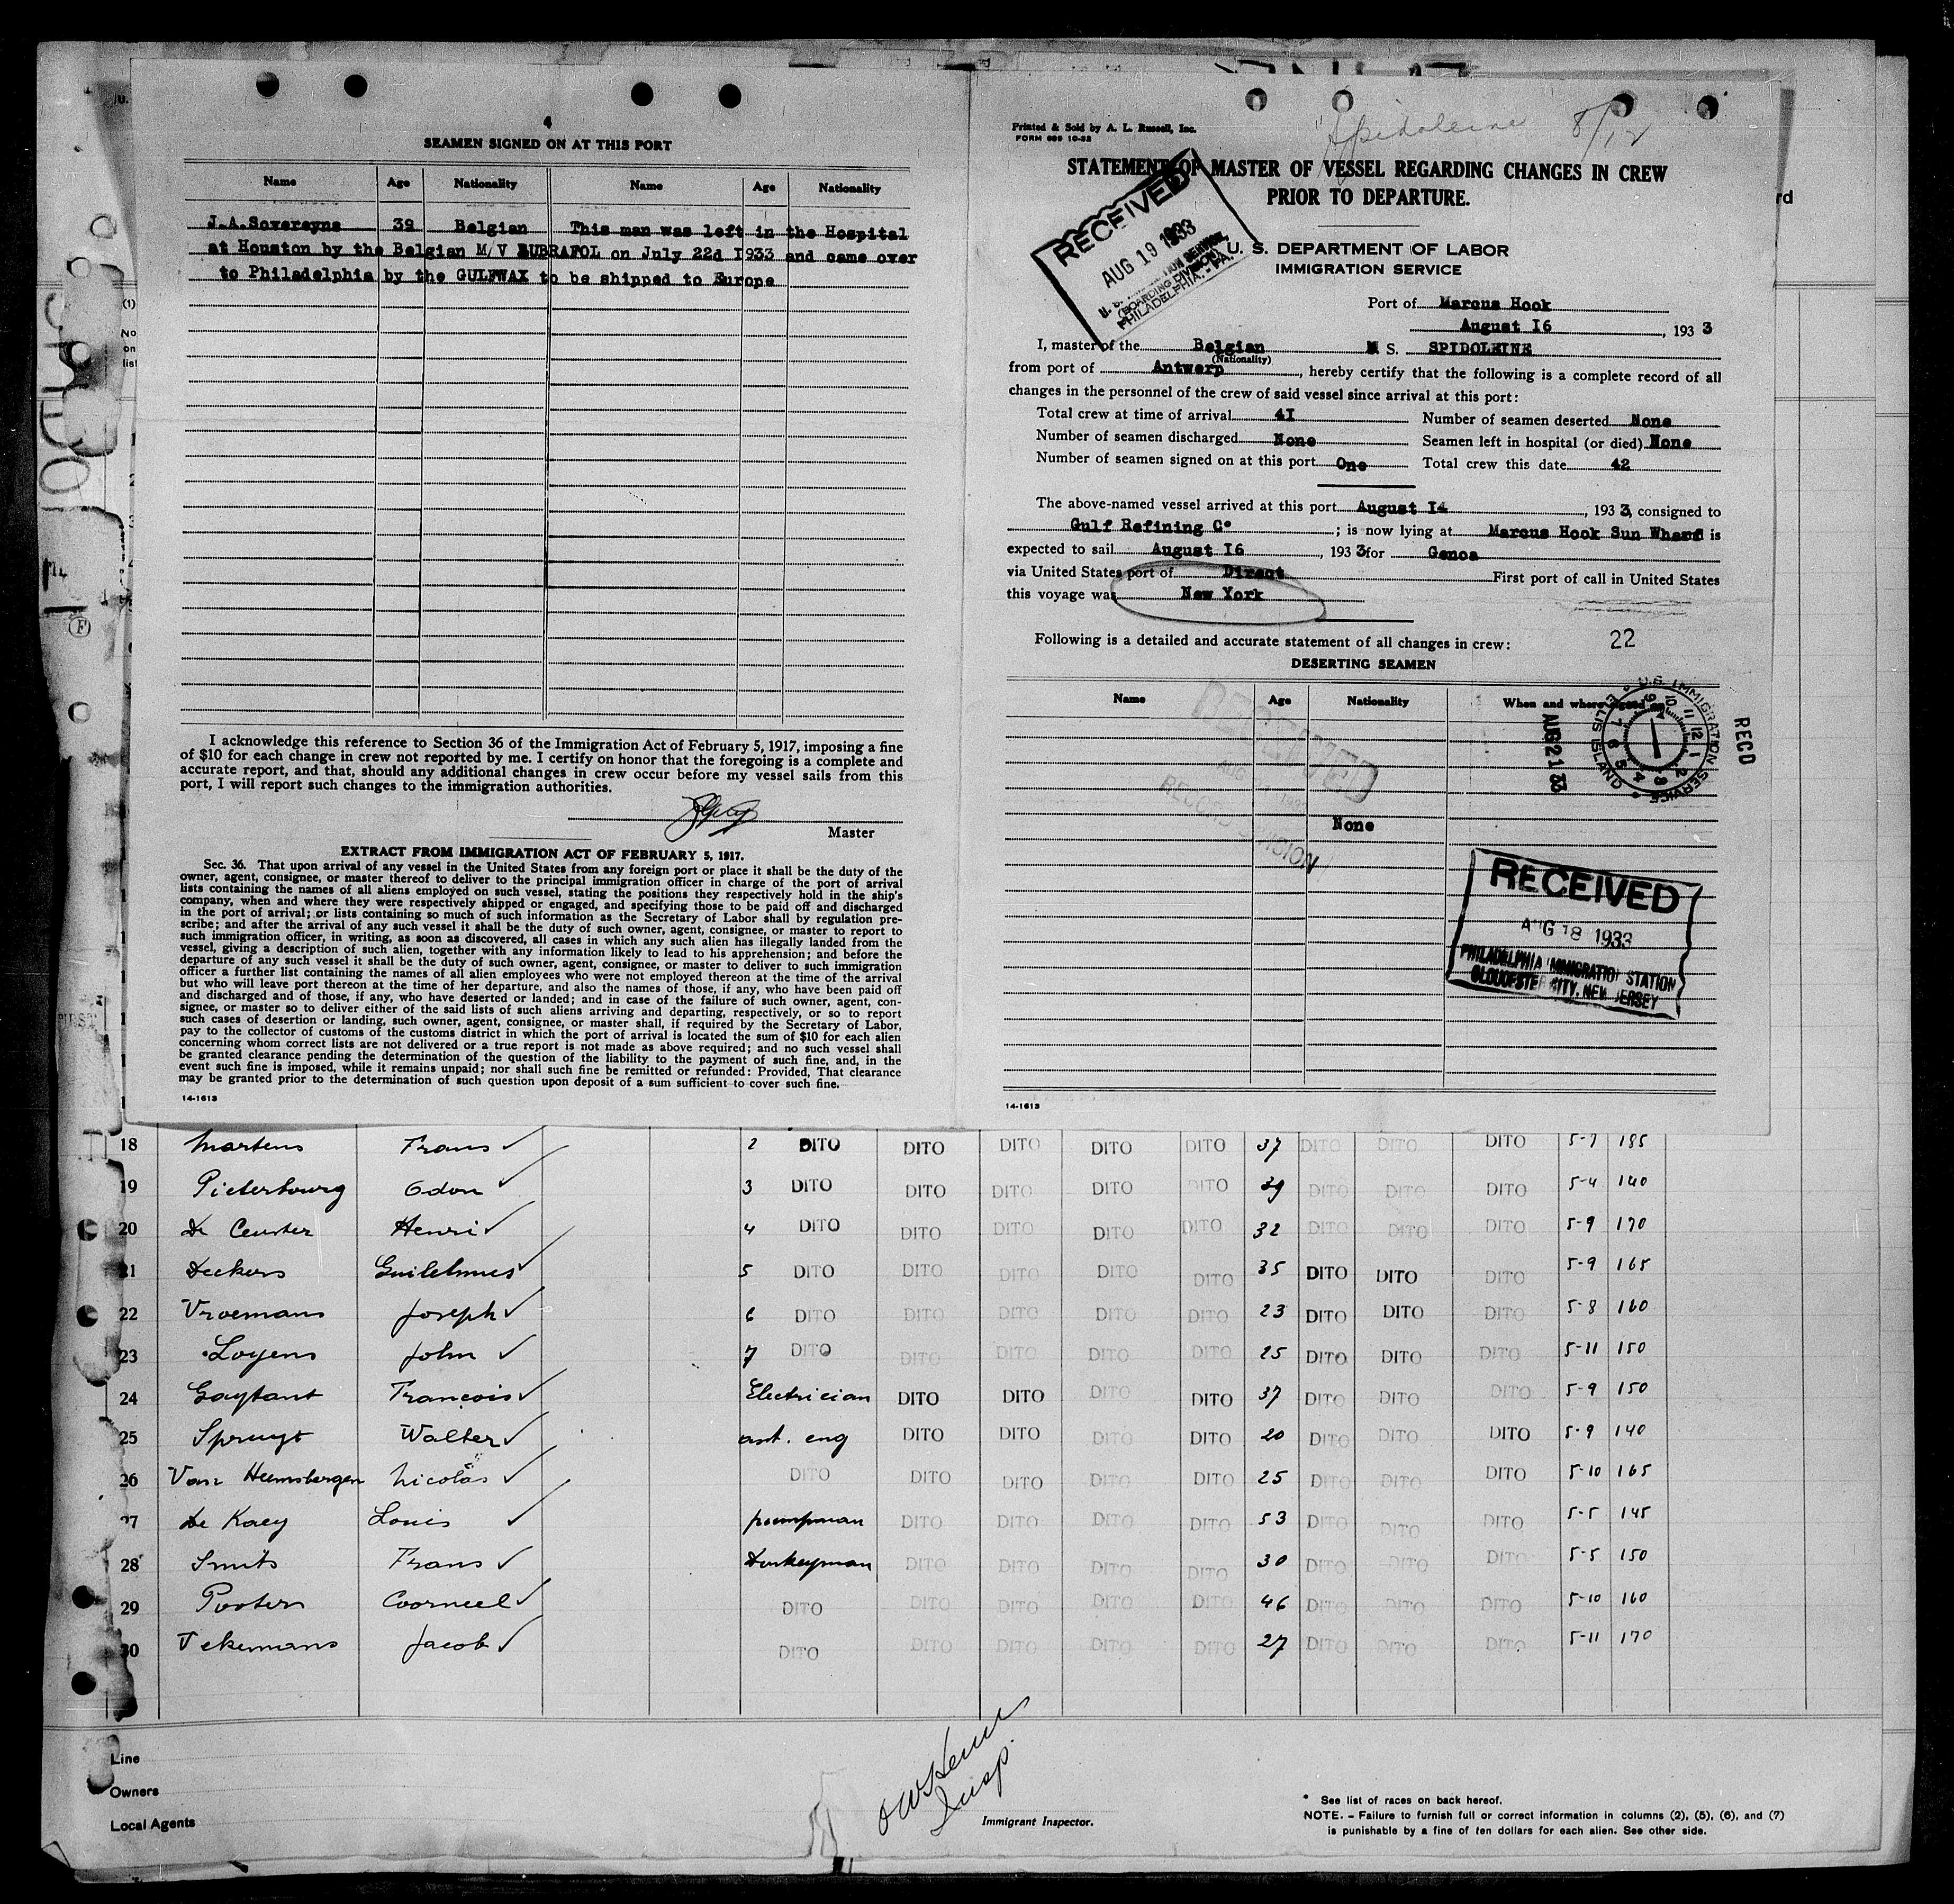 4
SEAMEN SIGNED ON AT THIS PORT
Name Age Nationality Name Age Nationality
J.A.Sovereyns 39 Belgian This man was left in the Hospital
at Houston by the Belgian M/V BUBRAFOL on July 22d I933 and came over
to Philadelphia by the GULFWAX to be shipped to Europe
I acknowledge this reference to Section 36 of the Immigration Act of February 5, 1917, imposing a fine
of $10 for each change in crew not reported by me. I certify on honor that the foregoing is a complete and
accurate report, and that, should any additional changes in crew occur before my vessel sails from this
port, I will report such changes to the immigration authorities.
Master
EXTRACT FROM IMMIGRATION ACT OF FEBRUARY 5, 1917.
Sec. 36. That upon arrival of any vessel in the United States from any foreign port or place it shall be the duty of the
owner, agent, consignee, or master thereof to deliver to the principal immigration officer in charge of the port of arrival
lists containing the names of all aliens employed on such vessel, stating the positions they respectively hold in the ship's
company, when and where they were respectively shipped or engaged, and specifying those to be paid off and discharged
in the port of arrival; or lists containing so much of such information as the Secretary of Labor shall by regulation pre-
scribe; and after the arrival of any such vessel it shall be the duty of such owner, agent, consignee, or master to report to
such immigration officer, in writing, as soon as discovered, all cases in which any such alien has illegally landed from the
vessel, giving a description of such alien, together with any information likely to lead to his apprehension; and before the
departure of any such vessel it shall be the duty of such owner, agent, consignee, or master to deliver to such immigration
officer a further list containing the names of all alien employees who were not employed thereon at the time of the arrival
but who will leave port thereon at the time of her departure, and also the names of those, if any, who have been paid off
and discharged and of those, if any, who have deserted or landed; and in case of the failure of such owner, agent, con-
signee, or master so to deliver either of the said lists of such aliens arriving and departing, respectively, or so to report
such cases of desertion or landing, such owner, agent, consignee, or master shall, if required by the Secretary of Labor,
pay to the collector of customs of the customs district in which the port of arrival is located the sum of $10 for each alien
concerning whom correct lists are not delivered or a true report is not made as above required; and no such vessel shall
be granted clearance pending the determination of the question of the liability to the payment of such fine, and, in the
event such fine is imposed, while it remains unpaid; nor shall such fine be remitted or refunded: Provided, That clearance
may be granted prior to the determination of such question upon deposit of a sum sufficient to cover such fine.
14-1613
Printed & Sold by A. L. Russell, Inc.
FORM 689 10-32
Spidoleine 8/12
STATEMENT OF MASTER OF VESSEL REGARDING CHANGES IN CREW
PRIOR TO DEPARTURE.
RECEIVED
AUG 19 1933
(BOARDING DIVISION)
PHILADELPHIA, - PA.
U. S. DEPARTMENT OF LABOR
IMMIGRATION SERVICE
Port of Marcus Hook
August I6, 193 3
I, master of the Belgian M S. SPIDOLEINE
(Nationality)
from port of Antwerp, hereby certify that the following is a complete record of all
changes in the personnel of the crew of said vessel since arrival at this port:
Total crew at time of arrival 4I Number of seamen deserted None
Number of seamen discharged None Seamen left in hospital (or died) None
Number of seamen signed on at this port One Total crew this date 42
The above-named vessel arrived at this port August I4, 193 3, consigned to
Gulf Refining C°; is now lying at Marcus Hook Sun Wharf is
expected to sail August I6, 193 3 for Genoa
via United States port of Direct First port of call in United States
this voyage was New York
Following is a detailed and accurate statement of all changes in crew: 22
DESERTING SEAMEN
Name Age Nationality When and where signed on
U.S. IMMIGRATION SERVICE
ELLIS ISLAND
AUG 21 33
RECD
RECEIVED
AUG
RECORD DIVISION
None
RECEIVED
AUG 18 1933
PHILADELPHIA IMMIGRATION STATION
GLOUCESTER CITY, NEW JERSEY
14-1613
18 Martens Frans 2 DITO DITO DITO DITO DITO 37 DITO DITO DITO 5-7 185
19 Pieterbourg Odon 3 DITO DITO DITO DITO DITO 39 DITO DITO DITO 5-4 140
20 De Ceuster Henri 4 DITO DITO DITO DITO DITO 32 DITO DITO DITO 5-9 170
21 Deckers Guilelmus 5 DITO DITO DITO DITO DITO 35 DITO DITO DITO 5-9 165
22 Vroemans Joseph 6 DITO DITO DITO DITO DITO 23 DITO DITO DITO 5-8 160
23 Loyens John 7 DITO DITO DITO DITO DITO 25 DITO DITO DITO 5-11 150
24 Gaytant Francois Electrician DITO DITO DITO DITO 37 DITO DITO DITO 5-9 150
25 Spruyt Walter ast. eng DITO DITO DITO DITO 20 DITO DITO DITO 5-9 140
26 Van Heemsbergen Nicolas DITO DITO DITO DITO DITO 25 DITO DITO DITO 5-10 165
27 De Kaey Louis pumpman DITO DITO DITO DITO 53 DITO DITO DITO 5-5 145
28 Smits Frans Donkeyman DITO DITO DITO DITO 30 DITO DITO DITO 5-5 150
29 Pooters Coorneel DITO DITO DITO DITO DITO 46 DITO DITO DITO 5-10 160
30 Tekemans Jacob DITO DITO DITO DITO DITO 27 DITO DITO DITO 5-11 170
Line
Owners
Local Agents
Insp.
Immigrant Inspector.
* See list of races on back hereof.
NOTE. – Failure to furnish full or correct information in columns (2), (5), (6), and (7)
is punishable by a fine of ten dollars for each alien. See other side.